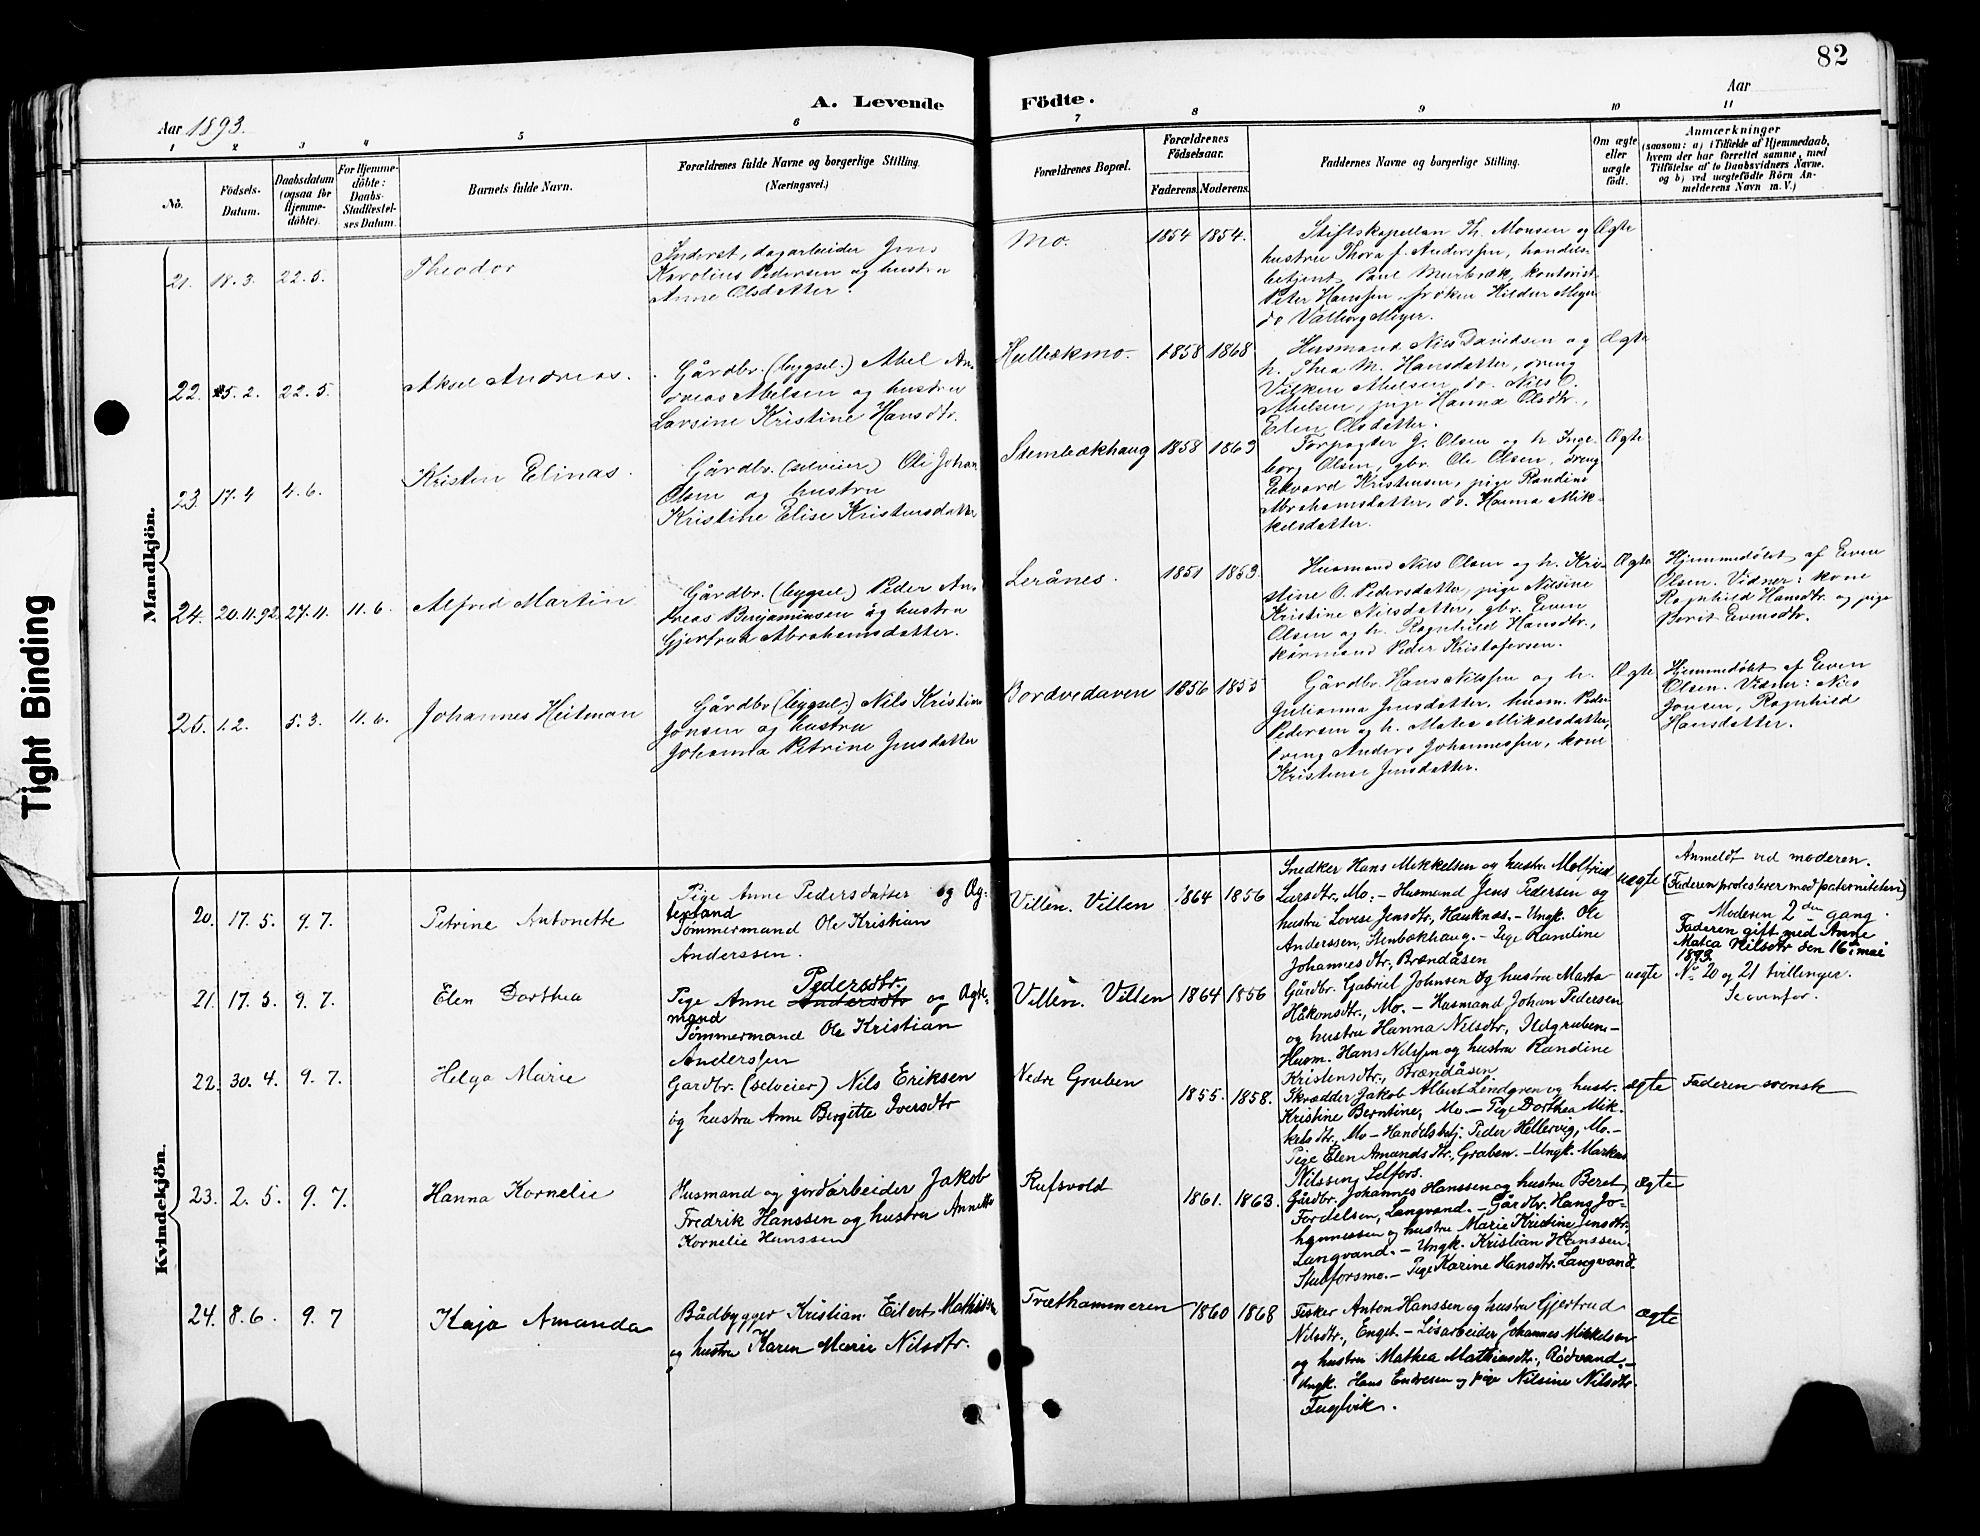 82
A. Levende Födte.
Aar 1893.
Aar
1 2 3 4 5 6 7 8 9 10 11
Nö.
Födsels-
Datum.
Daabsdatum
(ogsaa for
Hjemme-
döbte).
For Hjemme-
döbte:
Daabs-
Stadfæstel-
ses Datum.
Barnets fulde Navn.
Forældrenes fulde Navne og borgerlige Stilling.
(Næringsvei.)
Forældrenes Bopæl.
Forældrenes
Födselsaar.
Faderens. Moderens.
Faddernes Navne og borgerlige Stilling.
Om ægte
eller
uægte
födt.
Anmærkninger
(saasom: a) i Tilfælde af Hjemmedaab,
hvem der har forrettet samme, med
Tilföielse af to Daabsvidners Navne,
og b) ved uægtefödte Börn An-
melderens Navn m. V.)
Mandkjön.
21. 18. 3. 22. 5.
Theodor
Inderst, dagarbeider Jens
Karolius Pedersen og hustru
Anne Olsdatter.
Mo.
1854 1854.
Stiftskapellan Th. Monsen og
hustru Thora f. Anderssen, handels-
betjent Paul Murbræk, kontorist
Peter Hanssen, frøken Hildur Meyer
do Valborg Meyer.
Ægte
22. 5. 2. 22. 5.
Aksel Andreas.
Gårdbr. (bygsel.) Abel An-
dreas Abelsen og hustru
Larsine Kristine Hansdtr.
Hulbækmo.
1858 1868
Husmand Nils Davidsen og
h. Thea M. Hansdatter, dreng
Vilken Abelsen, do. Nils O.
Abelsen, pige Hanna Olsdtr.,
Elen Olsdatter.
Ægte
23. 17. 4 4. 6.
Kristen Elinas.
Gårdbr. (selveier) Ole Johan
Olsen og hustru
Kristine Elise Kristensdatter
Stenbækhaug
1858 1863
Forpagter J. Olsen og h. Inge-
borg Olsen, gbr. Ole Olsen, dreng
Edvard Kristensen, pige Randine
Abrahamsdatter, do. Hanna Mik-
kelsdatter.
Ægte
24. 20. 11. 92. 27. 11. 11. 6.
Alfred Martin
Gårdbr. (bygsel) Peder An-
dreas Benjaminsen og hustru
Gjertrud Abrahamsdatter.
Leränes.
1851 1853.
Husmand Nils Olsen og h. Kri-
stine O. Pedersdatter, pige Nilsine
Kristine Nilsdatter, gbr. Even
Olsen og h. Ragnhild Hansdtr.,
kårmand Peder Kristofersen.
Ægte
Hjemmedøbt af Even
Olsen. Vidner: kone
Ragnhild Hansdtr. og pige
Berit Evensdtr.
25. 1. 2. 5. 3. 11. 6.
Johannes Heitman
Gårdbr. (bygsel.) Nils Kristian
Jonsen og hustru
Johanna Petrine Jensdatter
Bordvedaven
1856 1855
Gårdbr. Hans Nilssen og h.
Julianna Jensdatter, husm. Peder
Pedersen og h. Matea Mikalsdatter,
dreng Anders Johannessen, kone
Kristense Jensdatter.
Ægte
Hjemmedøbt af Even
Olsen. Vidner: Nils
Jonsen, Ragnhild
Hansdatter.
Kvindekjön.
20. 17. 5. 9. 7.
Petrine Antonette
Pige Anne Pedersdatter og Æg-
temand
Tømmermand Ole Kristian
Anderssen.
Villen. Villen
1864 1856
Snedker Hans Mikkelsen og hustru Moltrud
Larsdtr, Mo. – Husmand Jens Pedersen og
hustru Lovise Jensdtr, Hauknæs. – Ungk. Ole
Anderssen, Stenbækhaug. – Pige Randine
Johannesdtr., Brændåsen
uægte
Anmeldt ved moderen.
(Faderen protesterer mod paterniteten)
Moderen 2den gang.
Faderen gift med Anne
Matea Nilsdtr den 16de mai
1893.
21. 17. 5. 9. 7.
Elen Dorthea
Pedersdtr.
Pige Anne Andersdtr og Ægte-
mand
Tømmermand Ole Kristian
Anderssen
Villen. Villen
1864 1856
Gårdbr. Gabriel Johnsen og hustru Marta
Håkonsdtr., Mo. – Husmand Johan Pedersen
og hustru Hanna Nilsdtr, Ildgruben. –
Husm. Hans Nilssen og hustru Randine
Kristensdtr., Brændåsen
uægte
No 20 og 21 tvillinger.
Se ovenfor.
22. 30. 4. 9. 7.
Helga Marie
Gardbr. (selveier) Nils Eriksen
og hustru Anne Birgitte Iversdtr
Nedre Gruben
1855. 1858.
Skrædder Jakob Albert Lindgren og hustr.
Kristine Berntine, Mo. – Pige Dorthea Mik-
kelsdtr, Mo – Handelsbetj. Peder Hellervig, Mo. –
Pige Elen Amandsdtr., Gruben. – Ungk. Markus
Nilssen, Selfors.
ægte
Faderen svensk
23. 2. 5. 9. 7.
Hanna Kornelie
Husmand og jordarbeider Jakob
Fredrik Hanssen og hustru Annette
Kornelie Hanssen
Rufsvold
1861. 1863.
Gårdbr. Johannes Hanssen og hustru Beret
Fordelsen, Langvand. – Gårdbr. Hans Jo-
hannessen og hustru Marie Kristine Jensdtr.
Langvand. – Ungk. Kristian Hanssen.
Stubforsmo. – Pige Karine Hansdtr. Langvand.
ægte
24. 8. 6. 9. 7
Kaja Amanda
Bådbygger Kristian Eilert Mathisen
og hustru Karen Marie Nilsdtr.
Træthammeren
1860 1868
Fisker Anton Hanssen og hustru Gjertrud
Nilsdtr., Enget. – Løsarbeider Johannes Mikkelsen
og hustru Mathea Mathiasdtr., Rødvand. –
Ungk. Hans Endresen og pige Nilsine Nilsdtr.
Fuglvik.
ægte
Tight Binding